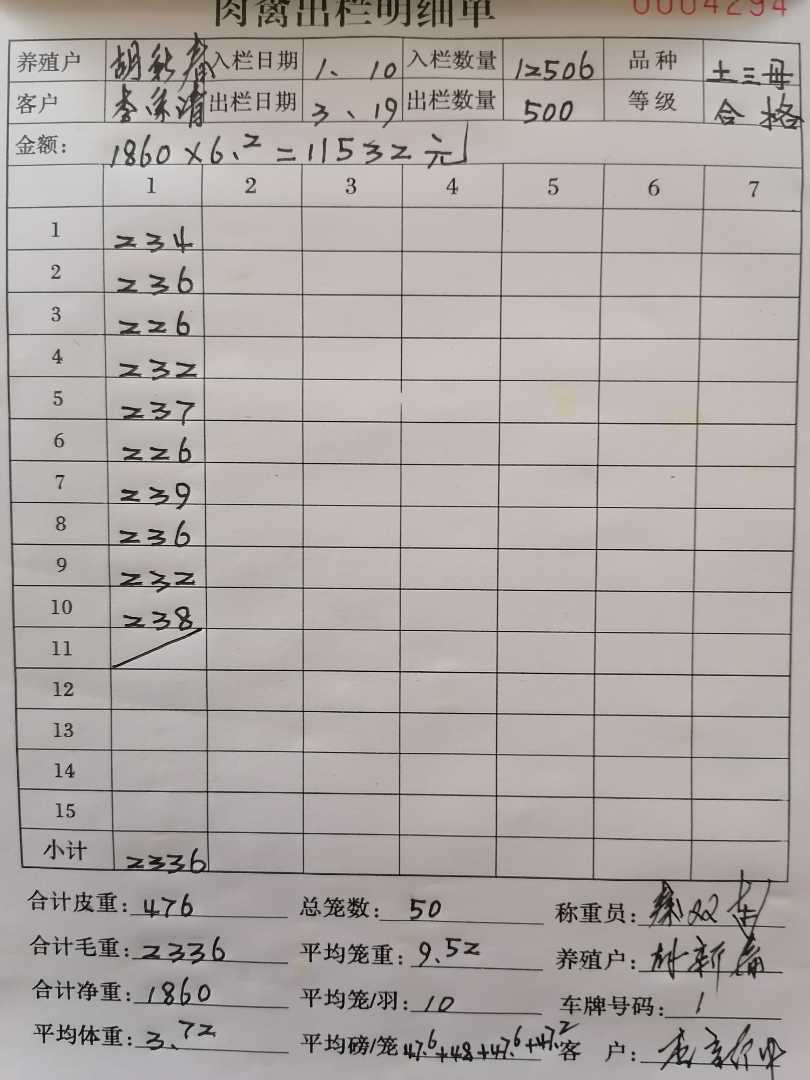 肉禽出栏明细单 0004294
养殖户 胡新春 入栏日期 1、10 入栏数量 12506 品种 土三母
客户 李 清 出栏日期 3、19 出栏数量 500 等级 合格
金额: 1860×6.2=11532元
1 2 3 4 5 6 7
1 234
2 236
3 226
4 232
5 237
6 226
7 239
8 236
9 232
10 238
11
12
13
14
15
小计 2336
合计皮重: 476 总笼数: 50 称重员:
合计毛重: 2336 平均笼重: 9.52 养殖户:
合计净重: 1860 平均笼/羽: 10 车牌号码: 1
平均体重: 3.72 平均磅/笼 47.6+48+47.6+47.2 客 户: